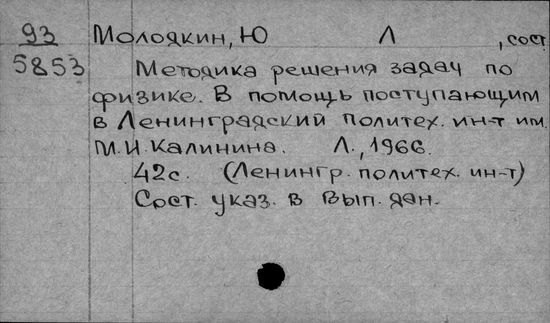 93 Молодкин, Ю Л , сост.
5853 Методика решения задач по
физике. В помощь поступающим
в Ленинградский политех. ин-т им.
М.И. Калинина. Л., 1966.
42с. (Ленингр. политех. ин-т)
Сост. указ. в вып. дан.